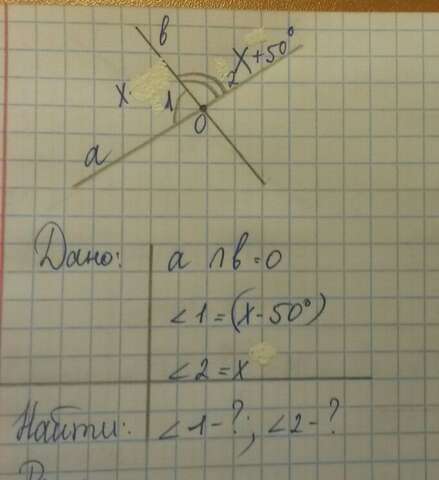 b
2 X+50°
X
1
O
a
Дано: a ∩ b = O
∠1 = (X - 50°)
∠2 = X
Найти: ∠1 - ?; ∠2 - ?